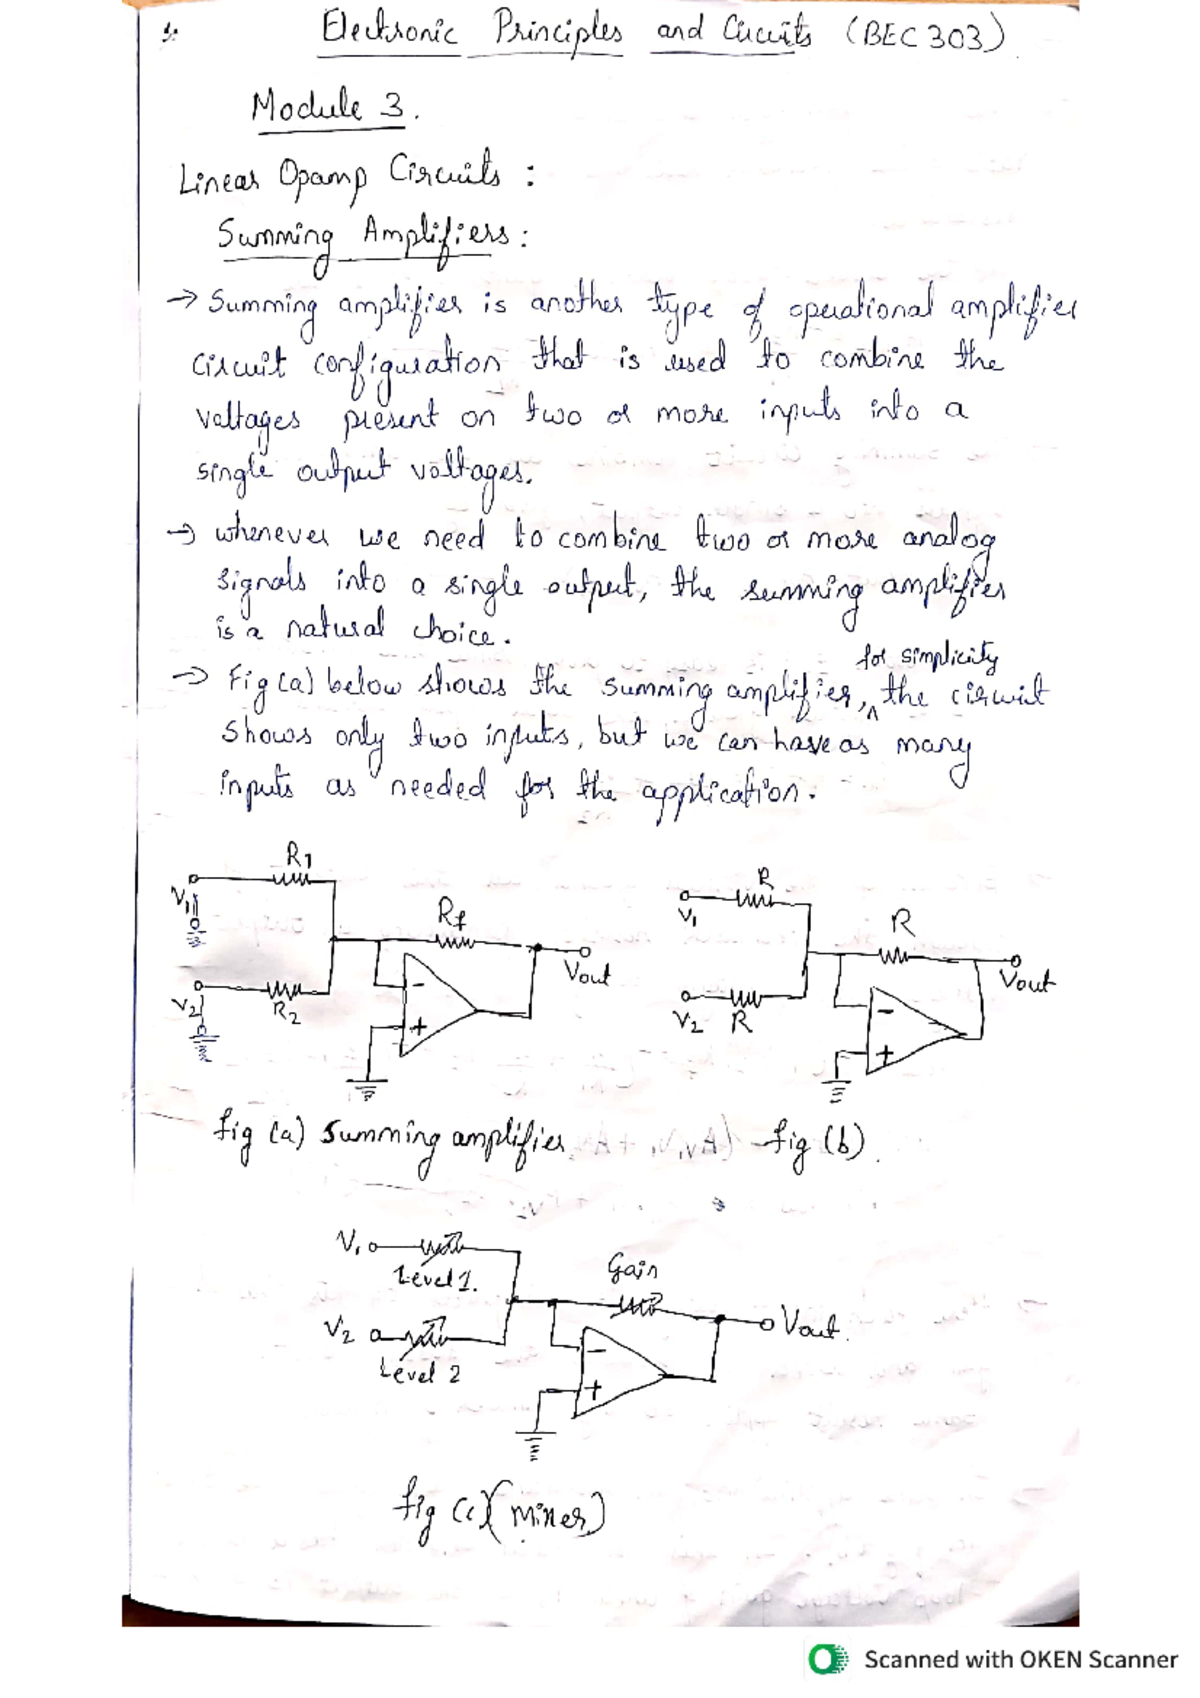 Electronic Principles and Circuits (BEC303)
Module 3.
Linear Opamp Circuits :
Summing Amplifiers :
→ Summing amplifier is another type of operational amplifier
circuit configuration that is used to combine the
voltages present on two or more inputs into a
single output voltages.
→ whenever we need to combine two or more analog
signals into a single output, the summing amplifier
is a natural choice.
for simplicity
→ Fig (a) below shows the summing amplifier, ^ the circuit
shows only two inputs, but we can have as many
inputs as needed for the application.
R1
V1
Rf
Vout
V2
R2
-
+
R
V1
R
Vout
V2 R
-
+
fig (a) Summing amplifier
fig (b)
V1
Level 1.
Gain
V2
Level 2
Vout.
-
+
fig (c) (mixer)
Scanned with OKEN Scanner